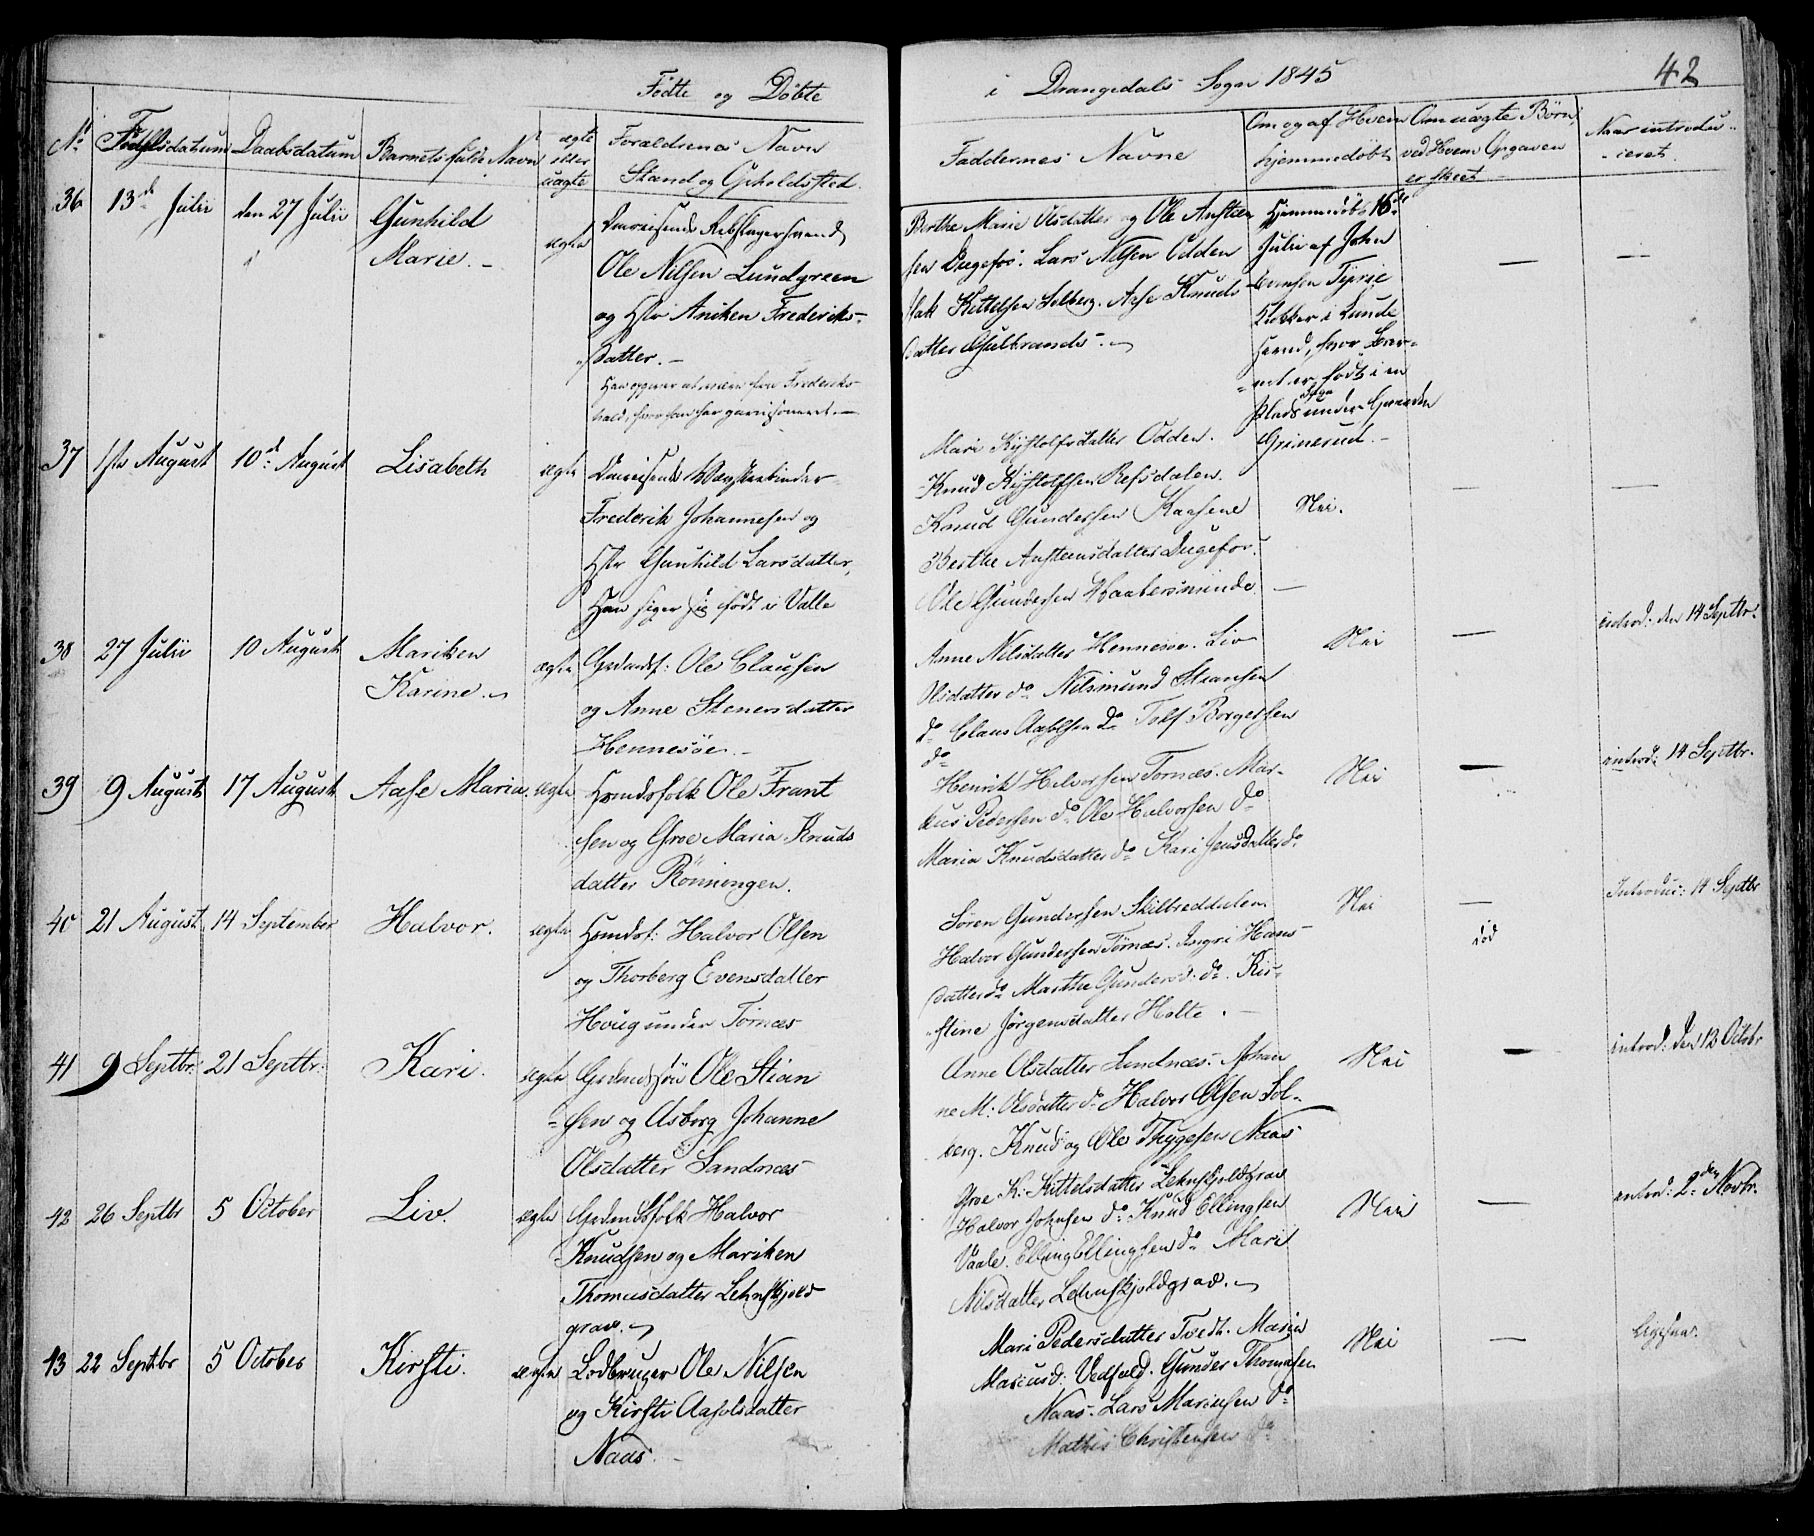 Fødte og Døbte
i Drangedals Sogn 1845
42
No
Fødselsdatum
Daabsdatum
Barnets fulde Navn
ægte
eller
uægte
Forældrenes Navn
Stand og Opholdsted.
Faddernes Navne
Om og af Hvem
hjemmedøbt
Om uægte Børn,
ved Hvem Opgaven
er skeet
Naar introdu-
ceret.
36
13d Julii
den 27 Julii
Gunhild
Marie.
ægte
Omreisende
Ole Nilsen Lundgreen
og Hstr Aniken Frederiks-
datter.
Han opgiver at være fra Frederiks-
hald, hvor han har garnisoneret.
Berthe Marie Olsdatter og Ole Austen
sen Dugefos. Lars Nilsen Odden
Isak Kittelsen Solberg. Aase Knuds
datter Gulbrands.
Hjemmedøbt 16de
Julii af John
Evensen Tyrie
Klokker i Lunde
Sogn, hvor Bar-
net er født i en
Plads under Gaarden
Grinerud.
—
—
37
1ste August
10d August
Lisabeth
ægte
Omreisende
Frederik Johannesen og
Hstr Gunhild Larsdatter,
Han siger sig født i Valle
Mari Kjøstolfsdatter Odden.
Knud Kjøstolfsen Refsdalen.
Knud Gundersen Kaasene
Berthe Austensdatter Dugefos.
Ole Gundersen
Nei.
—
—
38
27 Julii
10 August
Mariken
Karine.
ægte
Grdmdsf: Ole Clausen
og Anne Stenersdatter
Hennesøe.
Anne Nilsdatter Hennesøe. Liv
Olsdatter do Nilsmund Stiansen
do Claus Aslesen do Tolf Borgersen
do
Nei
—
introd: den 14 Septbr.
39
9 August
17 August
Aase Maria.
ægte
Hsmdsfolk Ole Frant
sen og Groe Maria Knuds
datter Rønningen.
Henrik Halvorsen Tornæs. Mar-
kus Pedersen do Ole Halvorsen do
Maria Knudsdatter do Kari Jensdatter do
Nei
—
introd: 14 Septbr.
40
21 August
14 September
Halvor.
ægte
Hsmdsf: Halvor Olsen
og Thorberg Evensdatter
Houg under Tornæs
Søren Gundersen Skilbreddalen
Halvor Gundersen Tørnæs. Ingri Hans-
datter do Marthe Gundersd: do. Kir-
stine Jørgensdatter Holte.
Nei
—
Introduc: 14 Septbr
41
9 Septbr.
21 Septbr.
Kari.
ægte
Ole Stian
sen og Asborg Johanne
Olsdatter Sandnæs
Anne Olsdatter Sandnæs. Johan
ne M: Olsdatter do Halvor Olsen Sol-
berg. Knud og Ole Thygesen Naas
Nei
—
introd: den 12 Octobr
42
26 Septbr
5 October
Liv.
ægte
Grdmdsfolk Halvor
Knudsen og Mariken
Thomasdatter Lehnskjold
grav.
Groe K: Kittelsdatter Lehnskjoldgrav
Halvor Johnsen do Knud Ellingsen
Vaale. Elling Ellingsen do Mari
Nilsdatter Lehnskjoldgrav.
Nei
—
introd: 2den Novbr.
43
22 Septbr
5 October
Kirsti.
ægte
Lodbruger Ole Nilsen
og Kirsti Aasolsdatter
Naas.
Mari Pedersdatter Tvedt. Maren
Marcusd: Vedfald. Gunder Thomasen
Naas. Lars Mariusen do
Mathis Christensen do
Nei
—